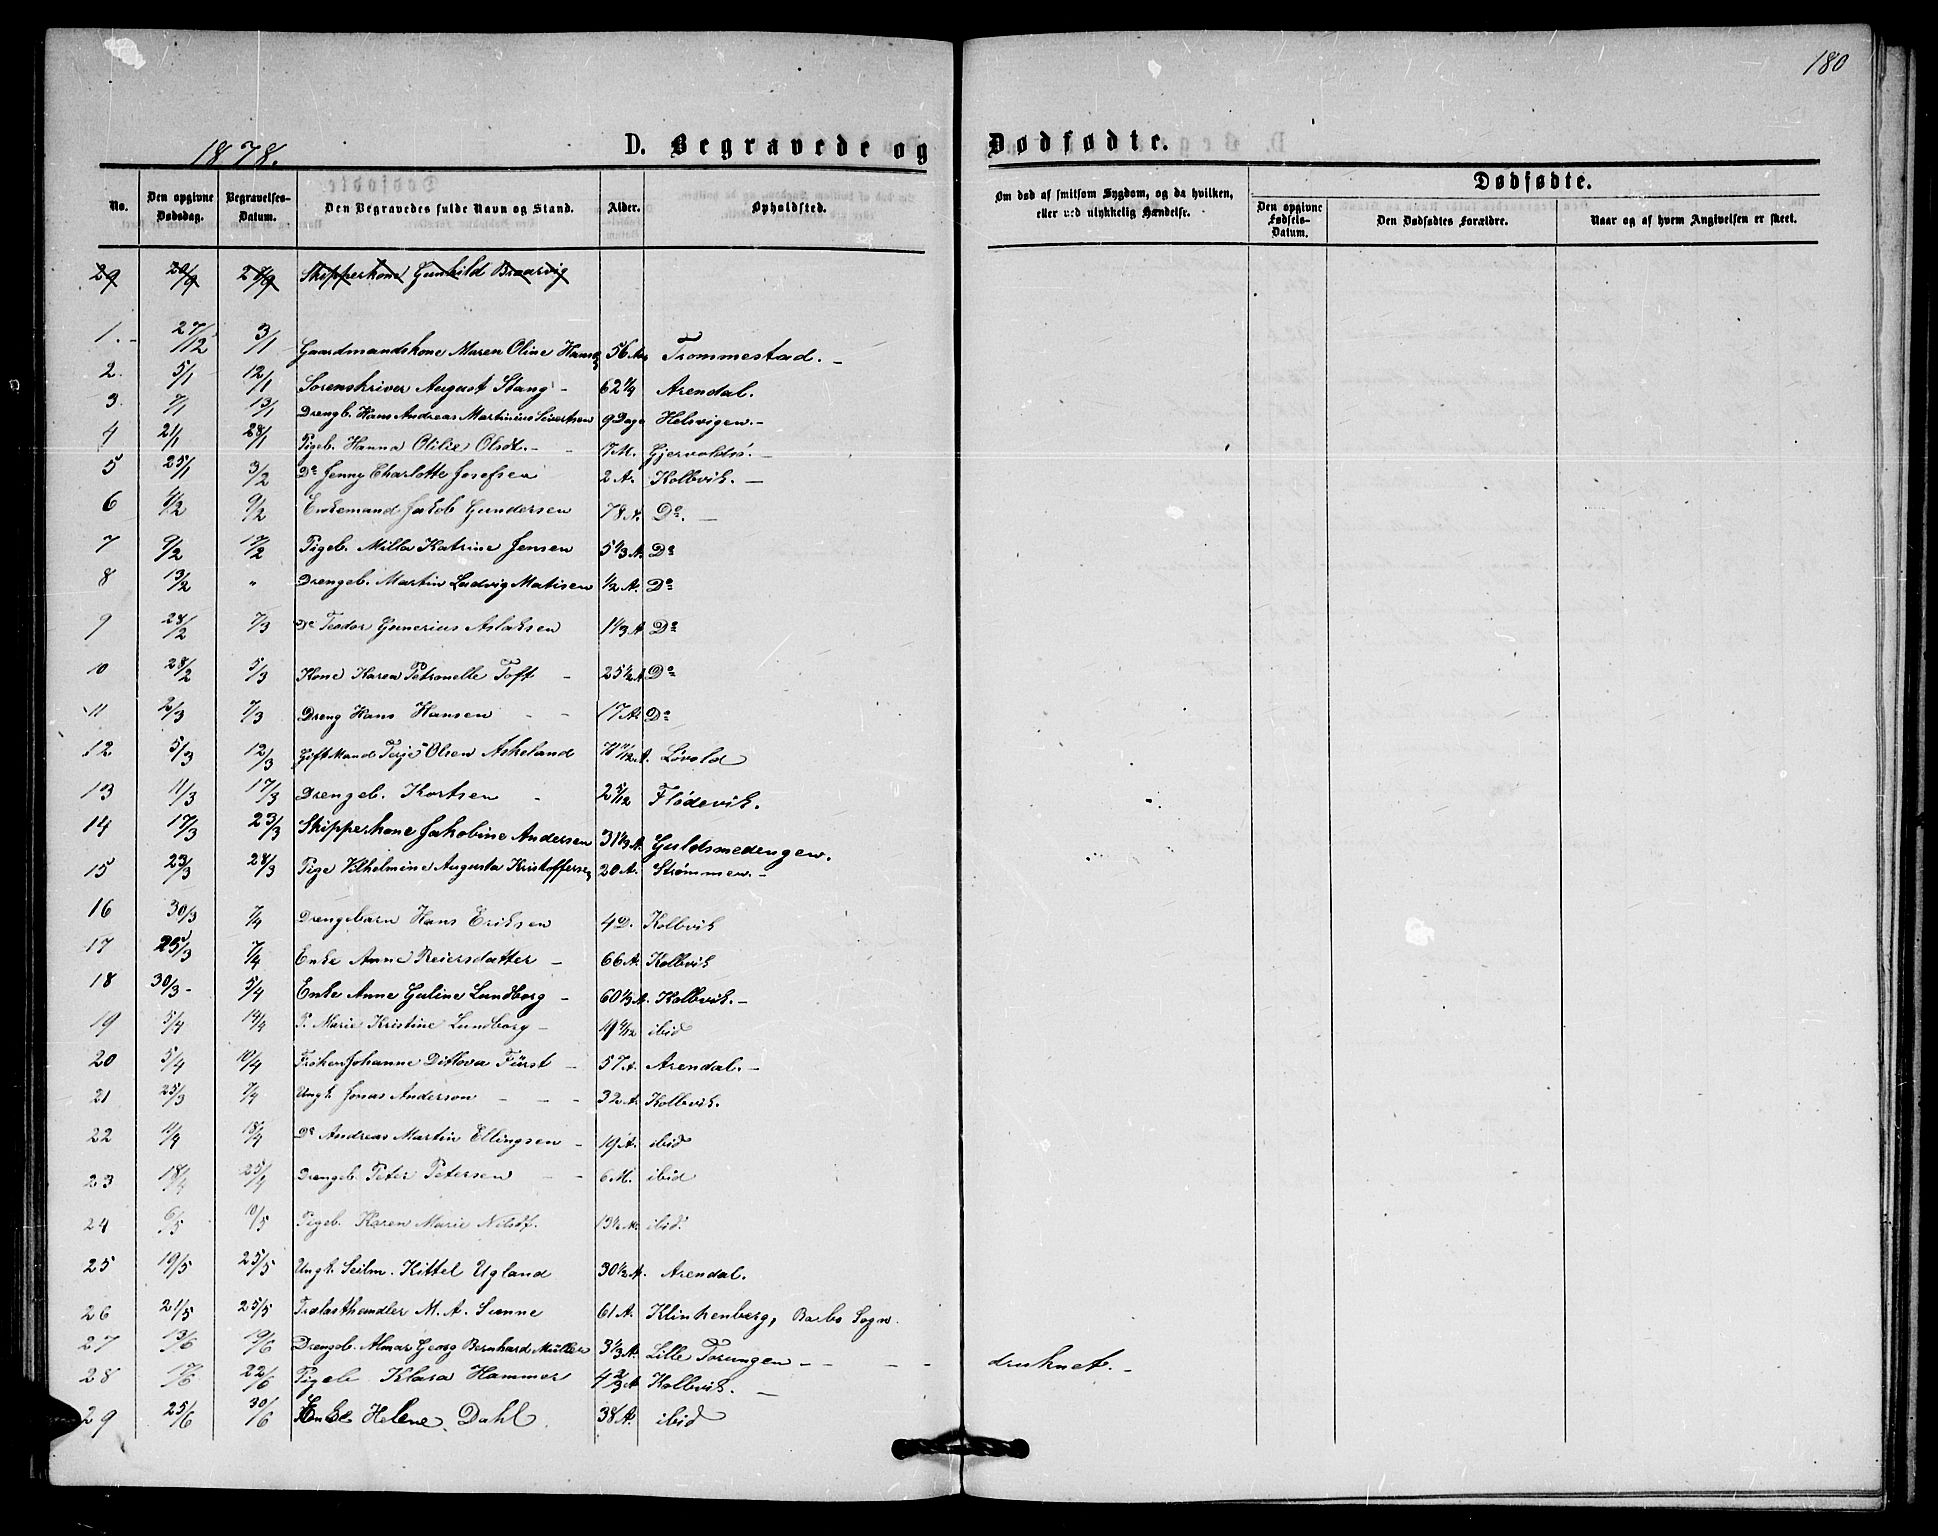 180
1878.
D. Begravede og Dødfødte.
No. Den opgivne Dødsdag. Begravelses-Datum. Den Begravedes fulde Navn og Stand. Alder. Opholdsted. Om død af smitsom Sygdom, og da hvilken, eller ved ulykkelig Hændelse. Dødfødte. Den opgivne Fødsels-Datum. Den Dødfødtes Forældre. Naar og af hvem Angivelsen er skeet.
29 20/9 Skipperkone Gunhild Braarvig
1. 27/12 3/1 Gaardmandskone Maren Oline 56 Aar Trommestad. -
2. 5/1 12/1 Sorenskriver August Stang - 62 1/4 Arendal.
3. 7/1 13/1 Drengb. Hans Andreas Martinius Sivertsen 9 Dage Helsvigen. -
4 21/1 28/1 Pigeb. Hanna Otilie Olsdt. - 7 M. -
5 25/1 3/2 Do Jenny Charlotte Josefsen 2 A. Kolbvik. -
6 4/2 9/2 Enkemand Jakob Gundersen 78 A. Do. -
7 9/2 17/2 Pigeb. Milla Katrine Jensen 5 1/3 A. Do
8 13/2 " Drengeb. Martin Ludvig Matisen 1/2 A. Do
9 28/2 7/3 Do Teodor Gunerius Aslaksen 1 1/3 A Do
10 28/2 5/3 Kone Karen Petronelle Toft - 25 1/2 A Do
11 2/3 7/3 Dreng Hans Hansen - - 17 A. Do
12 5/3 12/3 Gift Mand Terje Olsen Askeland A. Løvold
13 11/3 17/3 Drengeb. Kortsen - 2 5/12 Flødevik.
14 17/3 23/3 Skipperkone Jakobine Andersen 31 1/3 A. Guldsmedengen.
15 23/3 28/3 Pige Vilhelmine Augusta Kristoffersen 20 A. Strømmen. -
16 30/3 7/4 Drengebarn Hans Eriksen 4 D. Kolbvik
17 25/3 7/4 Enke Anne Reiersdatter - 66 A. Kolbvik
18 30/3 - 5/4 Enke Anne Guline Lundborg - 60 1/3 A. Kolbvik. -
19 5/4 14/4 P. Marie Kristine Lundborg - ibid
20 5/4 10/4 Frøken Johanne Ditlova Fürst - 57 A. Arendal. -
21 25/3 7/4 Ungk. Jonas Anderson - - - 32 A. Kolbvik.
22 11/4 18/4 Do Andreas Martin Ellingsen - 19 A. ibid
23 18/4 25/4 Drengeb. Peter Petersen - - 6 M. ibid
24 6/5 10/5 Pigeb. Karen Marie Nilsdt. ibid.
25 19/5 25/5 Ungk. Seilm. Kittel Ugland 30 1/2 A. Arendal.
26 21/5 25/5 Trælasthandler M. A. Sunne 61 A. Klinkenberg, Barbo Sogn.
27 13/6 19/6 Drengb. Almar Georg Bernhard Müller 3 1/3 A. Lille Torungen - - - - druknet. -
28 17/6 22/6 Pigeb. Klara Hammer 4 2/3 A Kolbvik. -
29 25/6 30/6 Enke Helene Dahl. 38 A. ibid